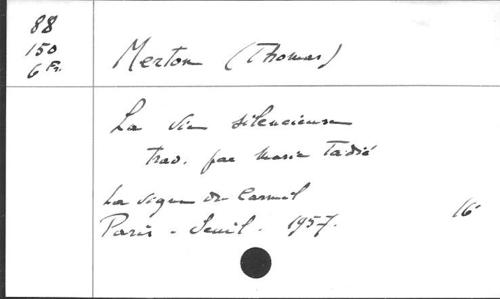 88
150
6 Fr.
Merton (Thomas)
La vie silencieuse
trad. par Marie Tadié
La vigne du Carmel
Paris - Seuil. 1957.
16°